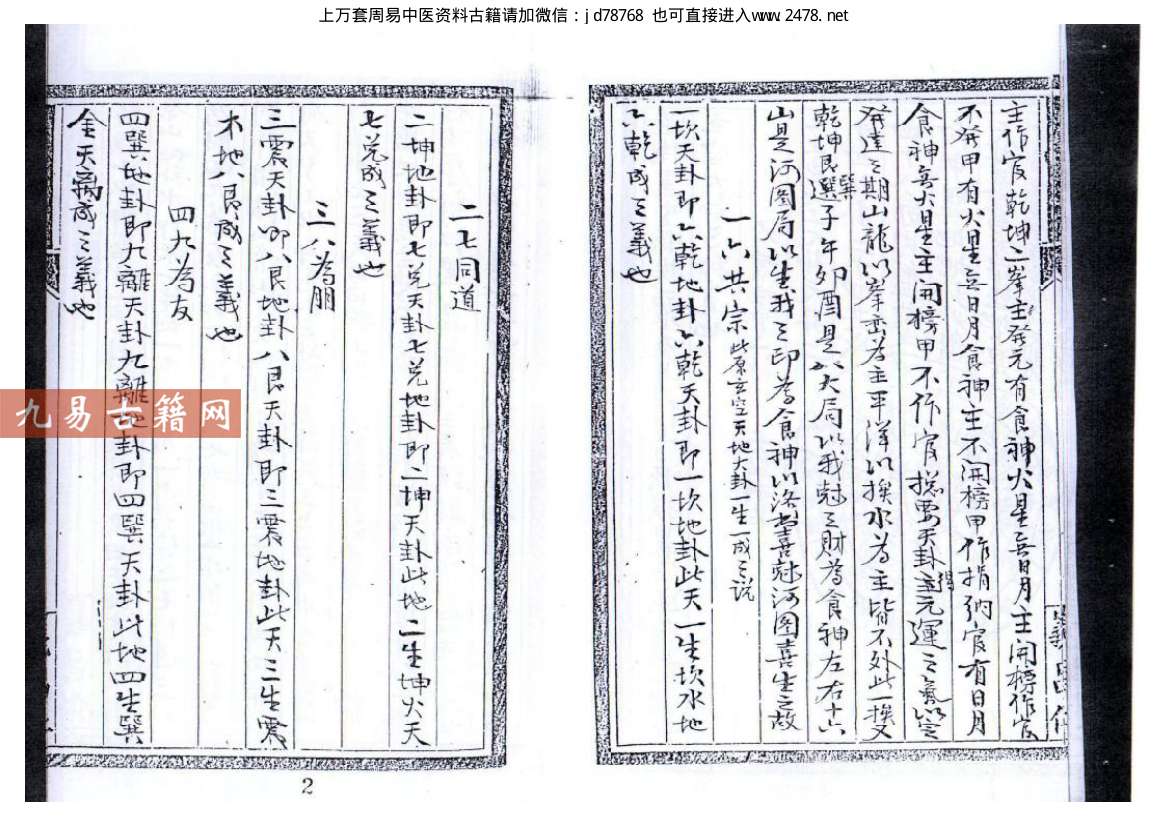 上万套周易中医资料古籍请加微信：jd78768 也可直接进入www.2478.net
主作官乾坤二峯主發元有食神火星無日月主開榜作官
不發甲有火星無日月食神主不開榜甲作捐納官有日月
食神無火星主開榜甲不作官總要天卦得元運之氣以定
發達之期山龍以峯巒為主平洋以挨水為主皆不外此一挨又
乾坤艮巽選子午卯酉是八大局以我尅之財為食神左右十六
山是河圖局以生我之印為食神以洛書喜尅河圖喜生之故
一六共宗 此原玄空天地大卦一生一成之說
一坎天卦即六乾地卦六乾天卦即一坎地卦此天一生坎水地
六乾成之義也
二七同道
二坤地卦即七兌天卦七兌地卦即二坤天卦此地二生坤火天
七兌成之義也
三八為朋
三震天卦即八艮地卦八艮天卦即三震地卦此天三生震
木地八艮成之義也
四九為友
四巽地卦即九離天卦九離地卦即四巽天卦此地四生巽
金天離成之義也
九易古籍网
2